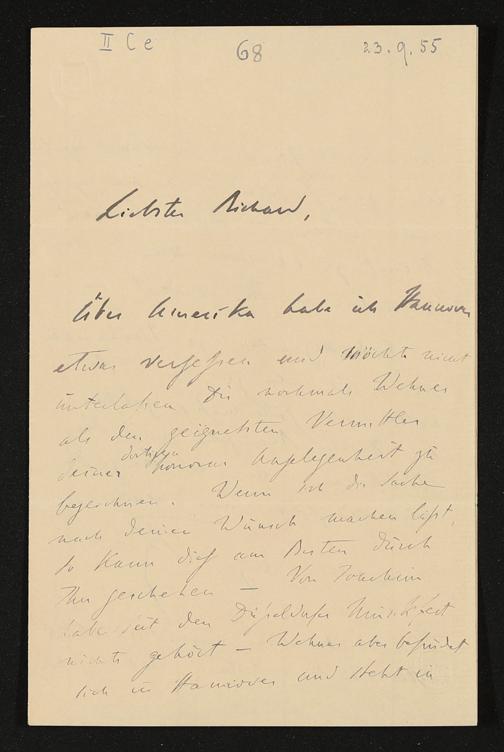 II C e 68 23.9.55
Liebster Richard,
Über Amerika habe ich Hannover
etwas vergessen und möchte nicht
unterlassen Dir nochmals Wehner
als den geeignetsten Vermittler
Deiner dortigen Angelegenheit zu
bezeichnen. Wenn sich die Sache
nach Deinem Wunsch machen läßt,
so kann dieß am Besten durch
Ihn geschehen — Von Joachim
habe seit dem Düsseldorfer Musikfest
nichts gehört — Wehner aber befindet
sich in Hannover und steht in